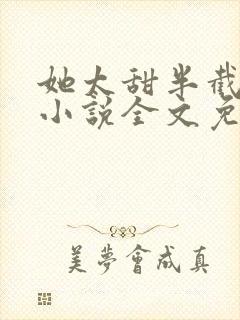 她太甜半截
小說全文免
美夢會成真